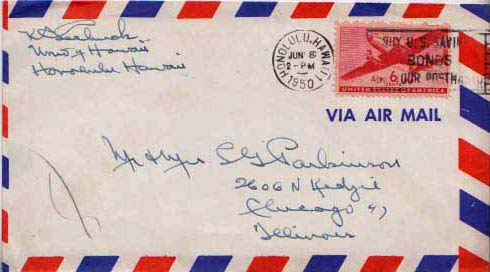 Univ of Hawaii
Honolulu Hawaii
HONOLULU, HAWAII
JUN 8
2-PM
1950
BUY U.S. SAVINGS
BONDS
OUR POSTMA
6
UNITED STATES OF AMERICA
VIA AIR MAIL
Mr & Mrs S G Parkinson
2606 N Kedzie
Chicago 47
Illinois